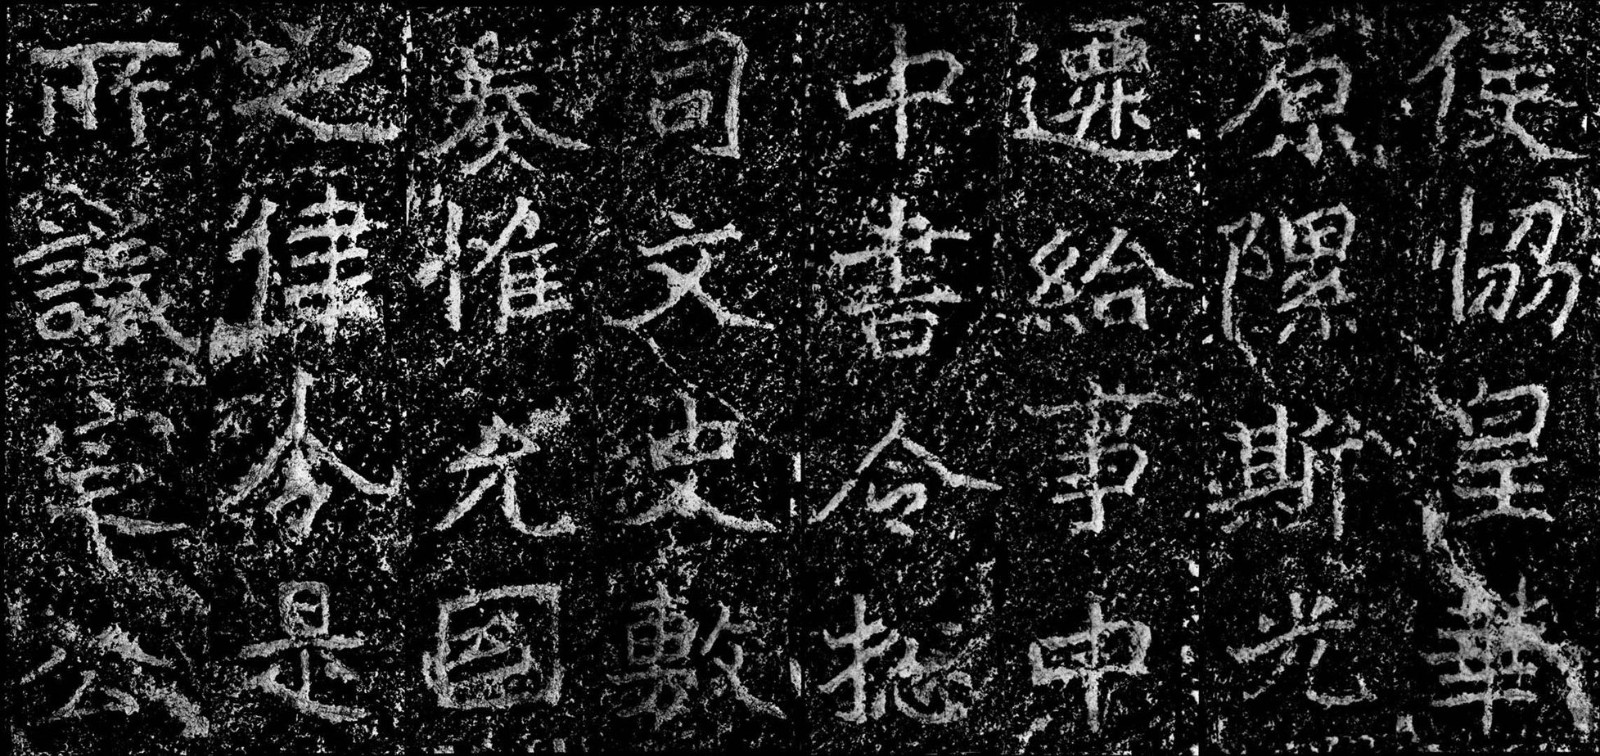 使恊皇華
原隰斯光
遷給事中
中書令揔
司文史敷
奏惟允國
之律令是
所議定公